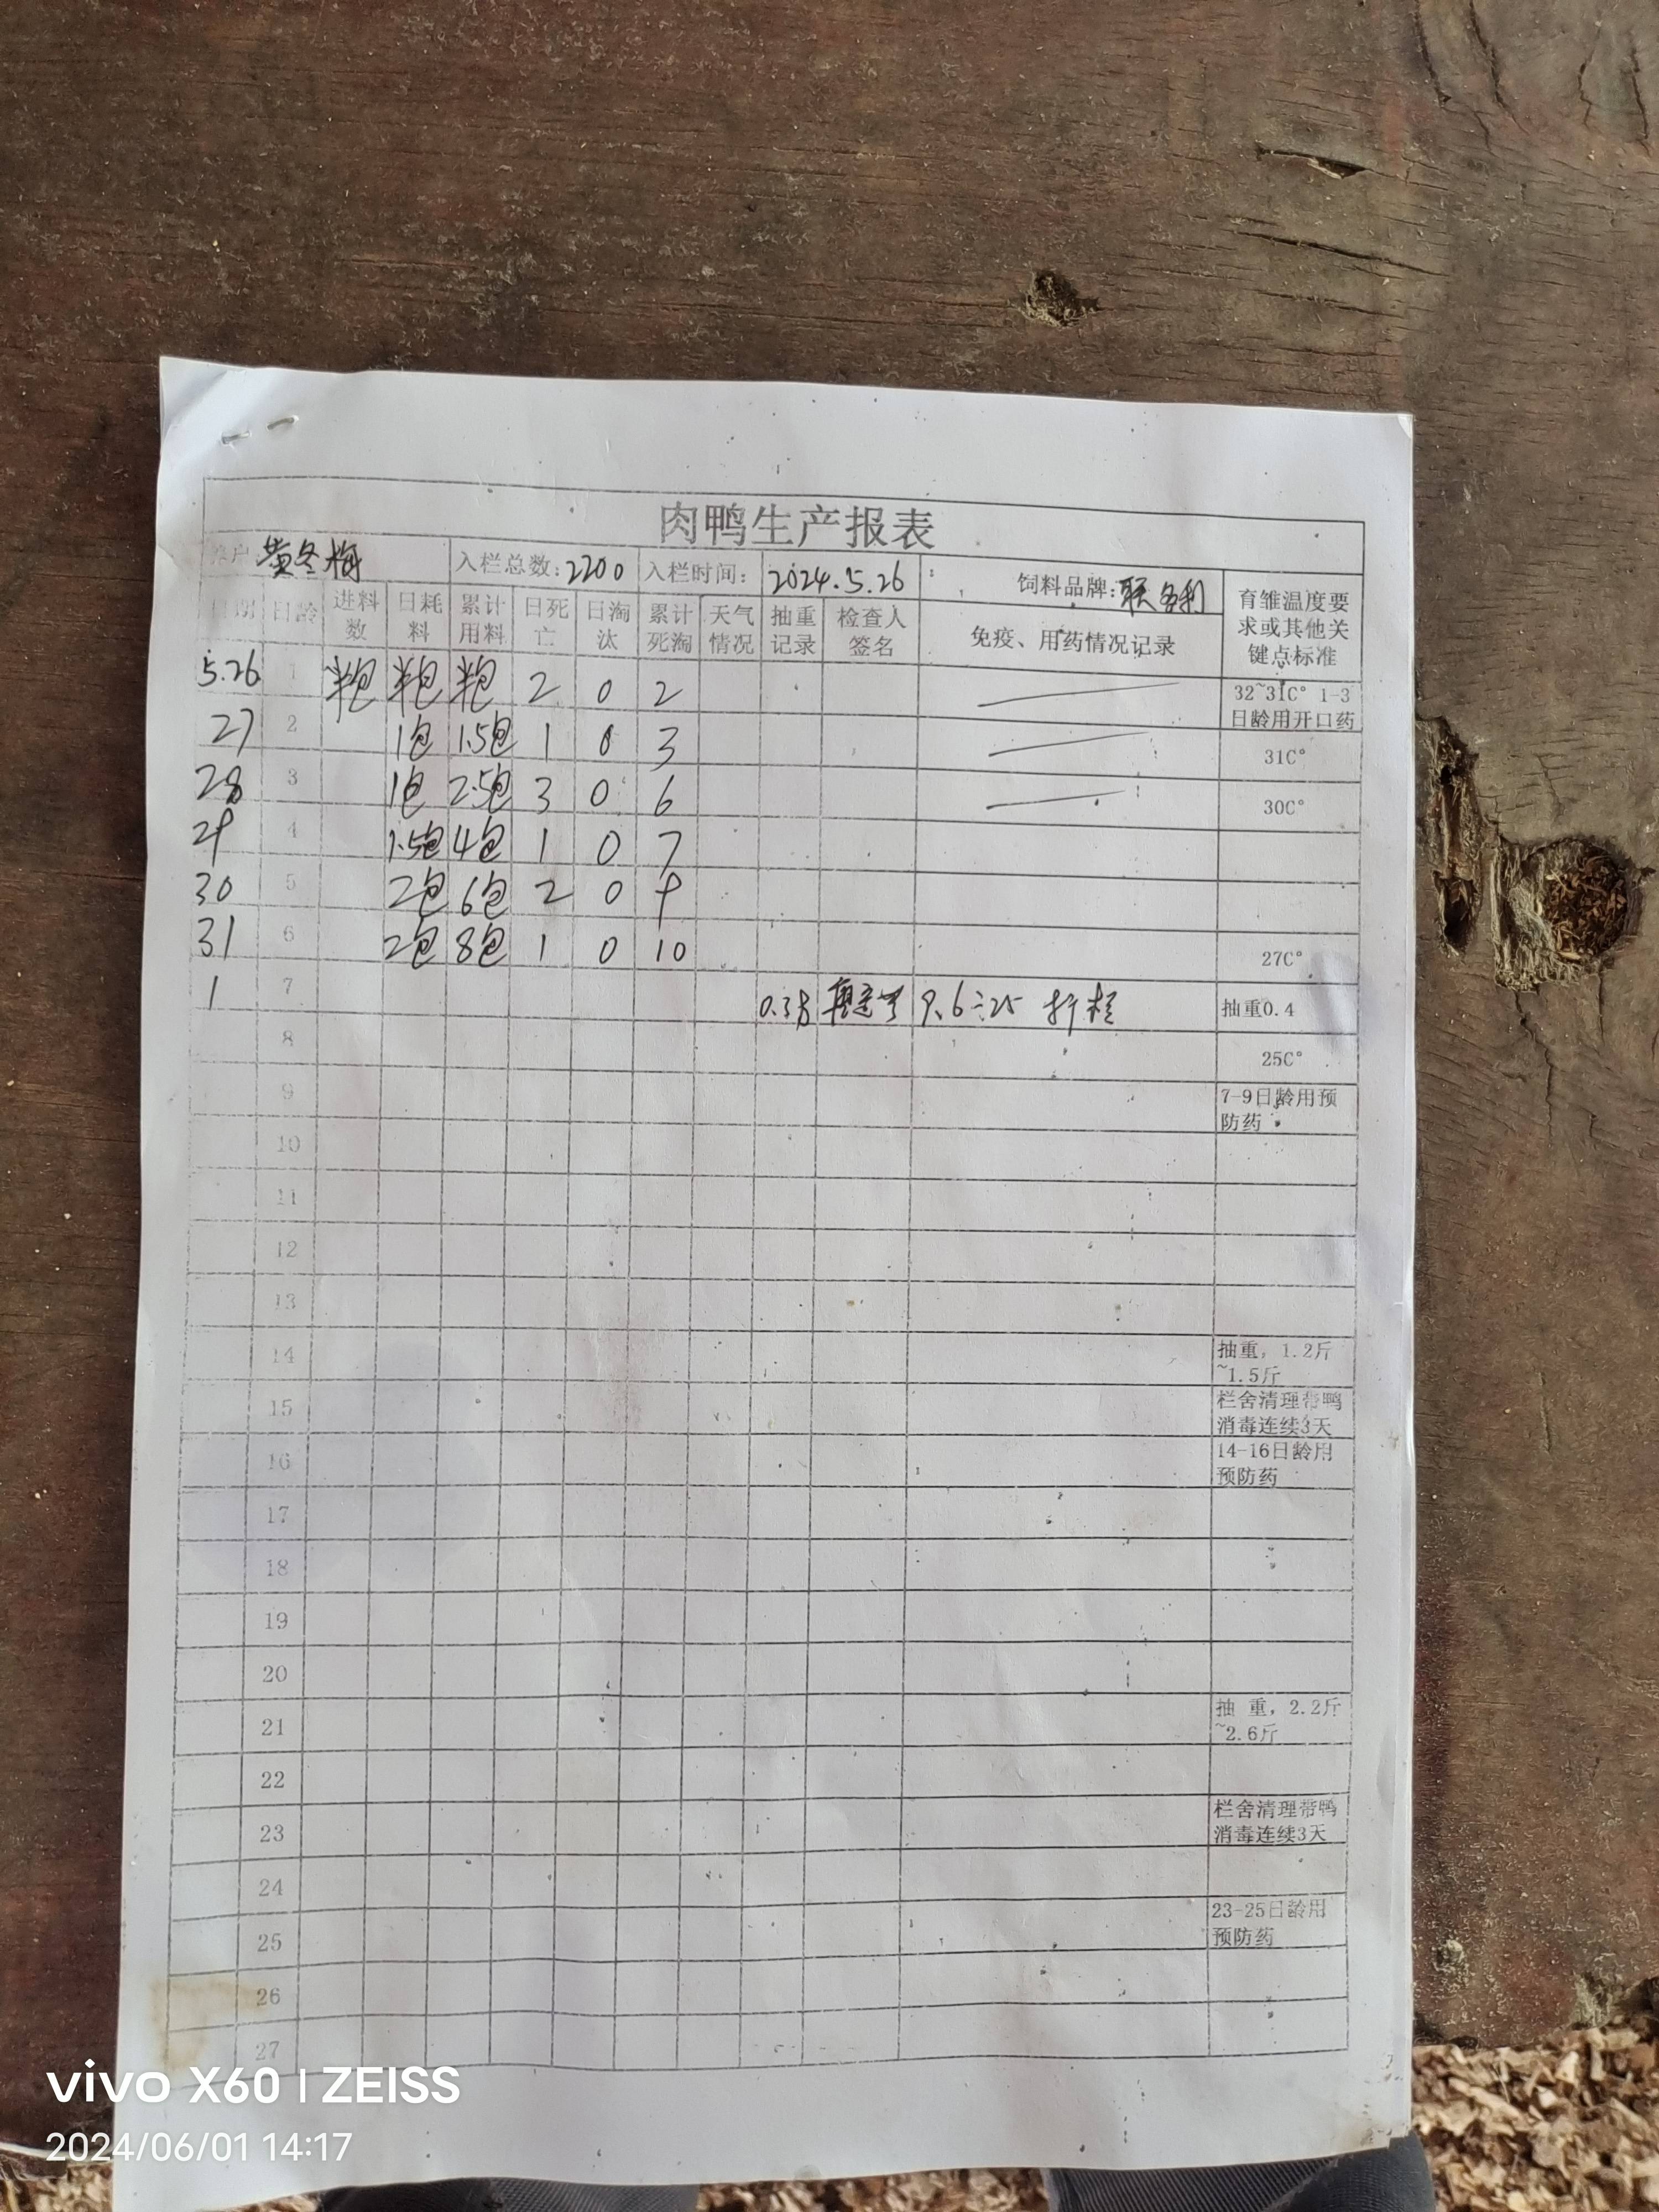 肉鸭生产报表
户 黄冬梅 入栏总数:2200 入栏时间: 2024.5.26 : 饲料品牌:联多利
日期 日龄 进料数 日耗料 累计用料 日死亡 日淘汰 累计死淘 天气情况 抽重记录 检查人签名 免疫、用药情况记录 育雏温度要求或其他关键点标准
5.26 1 半包 半包 半包 2 0 2 32~31C° 1-3日龄用开口药
27 2 1包 1.5包 1 0 3 31C°
28 3 1包 2.5包 3 0 6 30C°
29 4 1.5包 4包 1 0 7
30 5 2包 6包 2 0 9
31 6 2包 8包 1 0 10 27C°
1 7 0.38 9.6÷25 抽重0.4
8 25C°
9 7-9日龄用预防药
10
11
12
13
14 抽重，1.2斤~1.5斤
15 栏舍清理带鸭消毒连续3天
16 14-16日龄用预防药
17
18
19
20
21 抽 重，2.2斤~2.6斤
22
23 栏舍清理带鸭消毒连续3天
24
25 23-25日龄用预防药
26
27
vivo X60 | ZEISS
2024/06/01 14:17